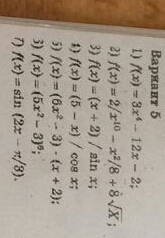 Вариант 5
1) f(x) = 3x⁴ - 12x - 2;
2) f(x) = 2/x¹⁰ - x²/8 + 8√X;
3) f(x) = (x + 2) / sin x;
4) f(x) = (5 - x) / cos x;
5) f(x) = (6x² - 3) · (x + 2);
6) f(x) = (5x² - 3)⁶;
7) f(x) = sin (2x - π/3).